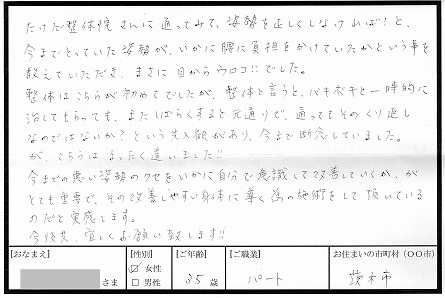 たけだ整体院さんに通ってみて、姿勢を正しくしなければ!と、
今までとっていた姿勢が、いかに腰に負担をかけていたかという事を
教えていただき、まさに目からウロコ!!でした。
整体はこちらが初めてでしたが、整体と言うと、バキボキと一時的に
治してもらっても、またしばらくすると元通りで、通ってもそのくり返し
なのではないか?という先入観があり、今まで断念していました。
が、こちらはまったく違いました!!
今までの悪い姿勢のクセをいかに自分で意識して改善していくか、が
とても重要で、その改善しやすい身体に導く為の施術をして頂いている
のだと実感します。
今後共、宜しくお願い致します!!
【おなまえ】 さま
【性別】 ☑女性 □男性
【ご年齢】 35歳
【ご職業】 パート
お住まいの市町村(○○市) 茨木市